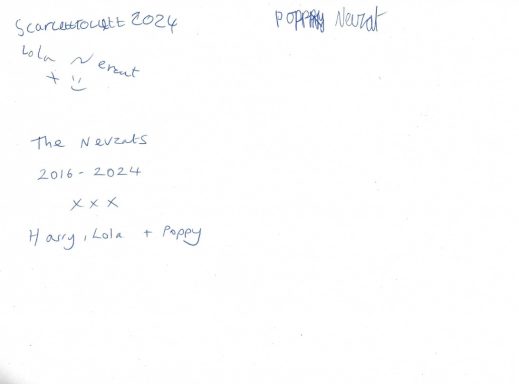 2024
Poppy Nevzat
Lola Nevzat
+
The Nevzats
2016 - 2024
x x x
Harry, Lola + Poppy